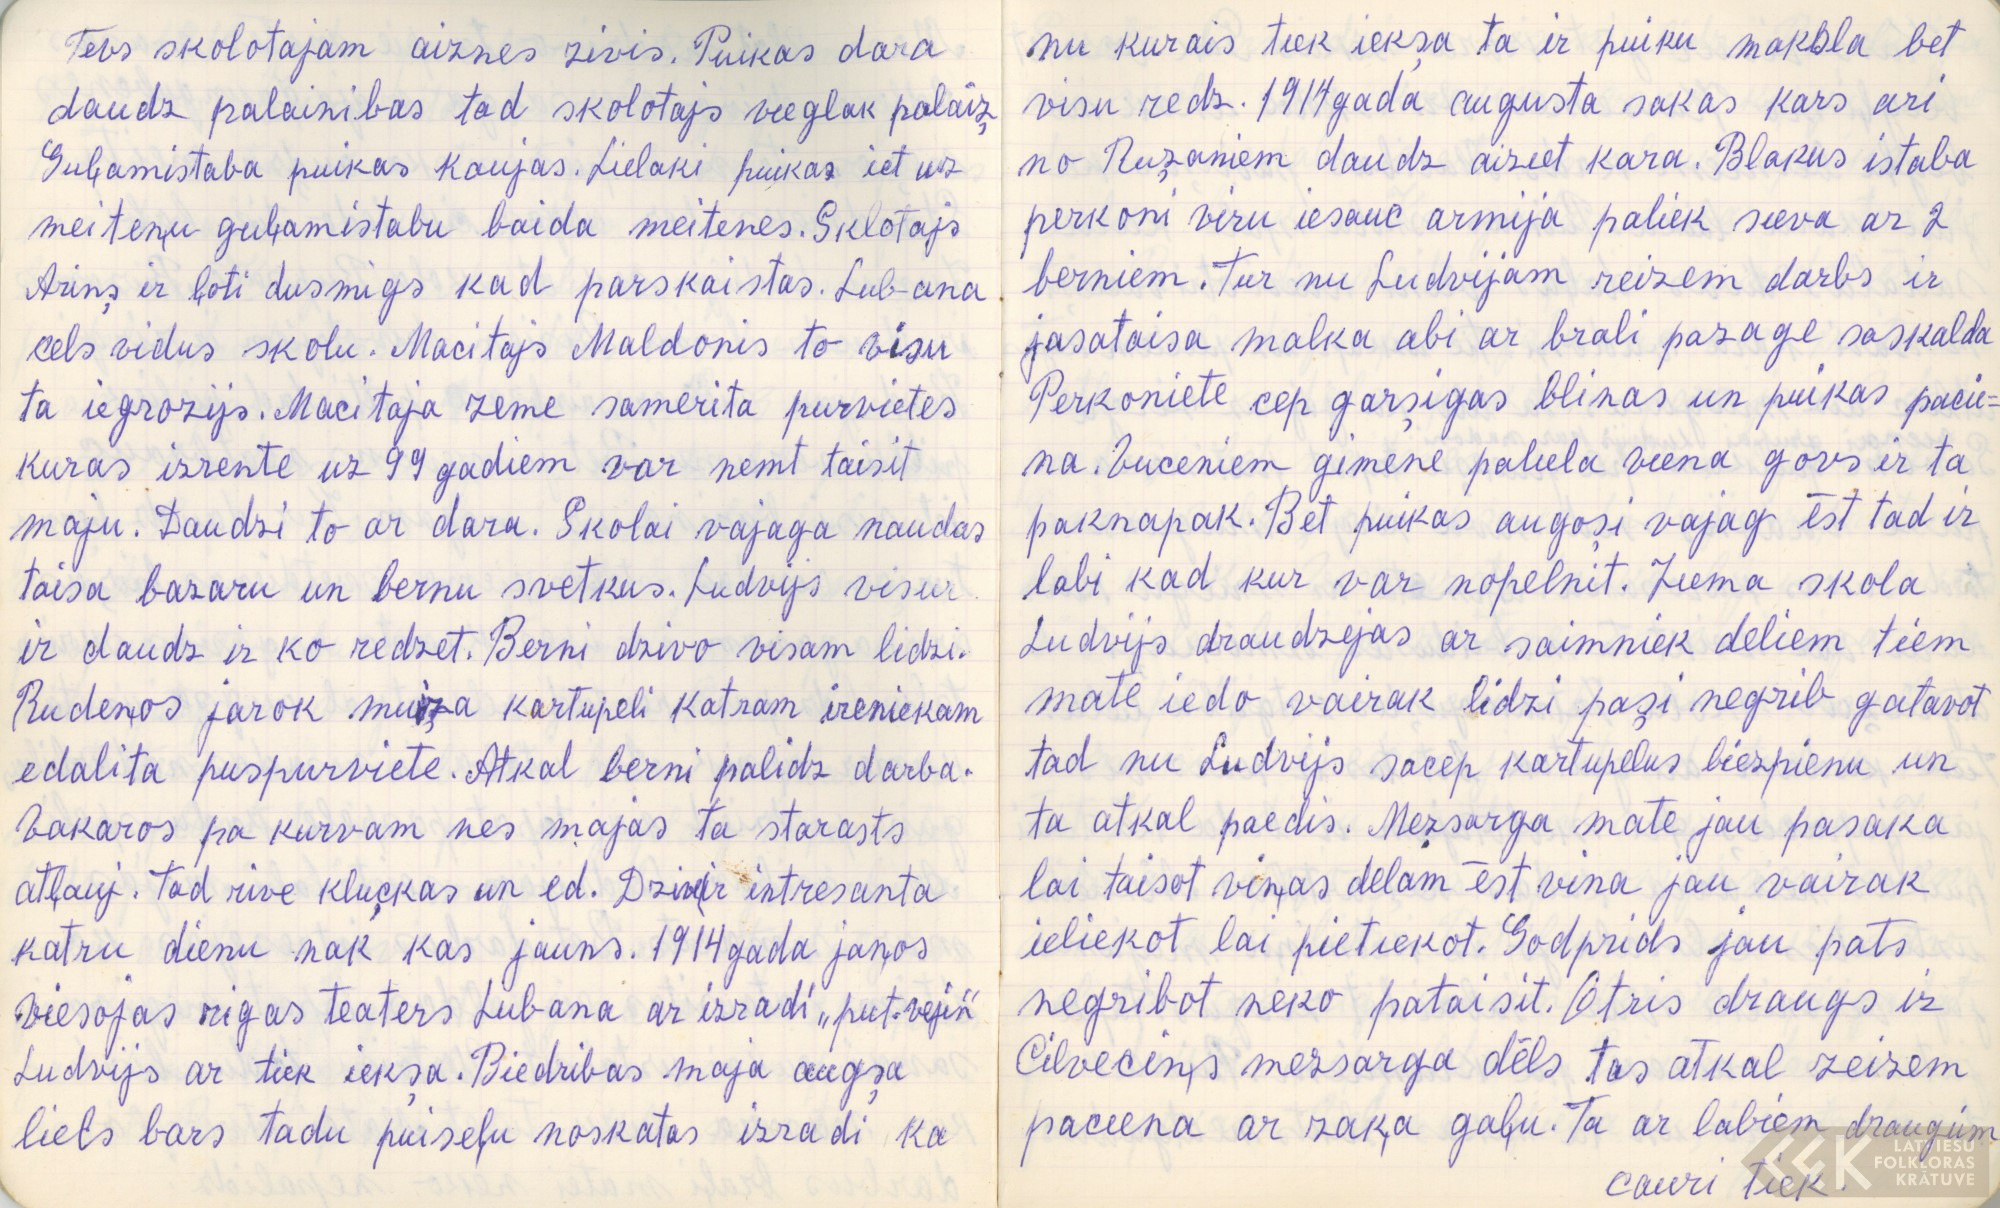 Tevs skolotajam aiznes zivis. Puikas dara
daudz palainibas tad skolotajs vieglak palaiz̦
Guļamistaba puikas kaujas. Lielaki puikas iet uz
meiteņu guļamistabu baida meitenes. Sklotajs
Arinș ir ļoti dusmigs kad parskaistas. Lubana
cels vidus skolu. Macitajs Maldonis to visu
ta iegrozijs. Macitaja zeme samerita purvietes
kuras izrente uz 99 gadiem var nemt taisit
maju. Daudzi to ar dara. Skolai vajaga naudas
taisa bazaru un bernu svetkus. Ludvijs visur
ir daudz ir ko redzet. Berni dzivo visam lidzi.
Rudeņos jarok muiz̦a kartupeli katram ireniekam
edalita puspurviete. Atkal berni palidz darba.
Vakaros pa kurvam nes majas ta starasts
atļauj. Tad rive kluckas un ed. Dzive ir intresanta
katru dienu nak kas jauns. 1914 gada jaņos
viesojas rigas teaters Lubana ar izradi „put. vejiņ"
Ludvijs ar tiek iekșa. Biedribas maja augșa
liels bars tadu puiseļu noskatas izradi ka
nu kurais tiek iekșa ta ir puiku maksla bet
visu redz. 1914 gada augusta sakas kars ari
no Ruz̦aniem daudz aiziet kara. Blakus istaba
perkoni viru iesauc armija paliek sieva ar 2
berniem. Tur nu Ludvijam reizem darbs ir
jasataisa malka abi ar brali pazage saskalda
Perkoniete cep garșigas blinas un puikas pacie=
na. Vuceniem gimene paliela viena govs ir ta
paknapak. Bet puikas augoși vajag ēst tad ir
labi kad kur var nopelnit. Ziema skola
Ludvijs draudzejas ar saimniek deliem tiem
mate iedo vairak lidzi pași negrib gatavot
tad nu Ludvijs sacep kartupelus biezpienu un
ta atkal paedis. Mez̦sarga mate jau pasaka
lai taisot viņas delam ēst vina jau vairak
ieliekot lai pietiekot. Godprids jau pats
negribot neko pataisit. Otris draugs ir
Cilveciņs mezsarga dēls tas atkal reizem
paciena ar zaķa gaļu. Ta ar labiem draugim
cauri tiek.
LATVIEŠU
FOLKLORAS
KRĀTUVE